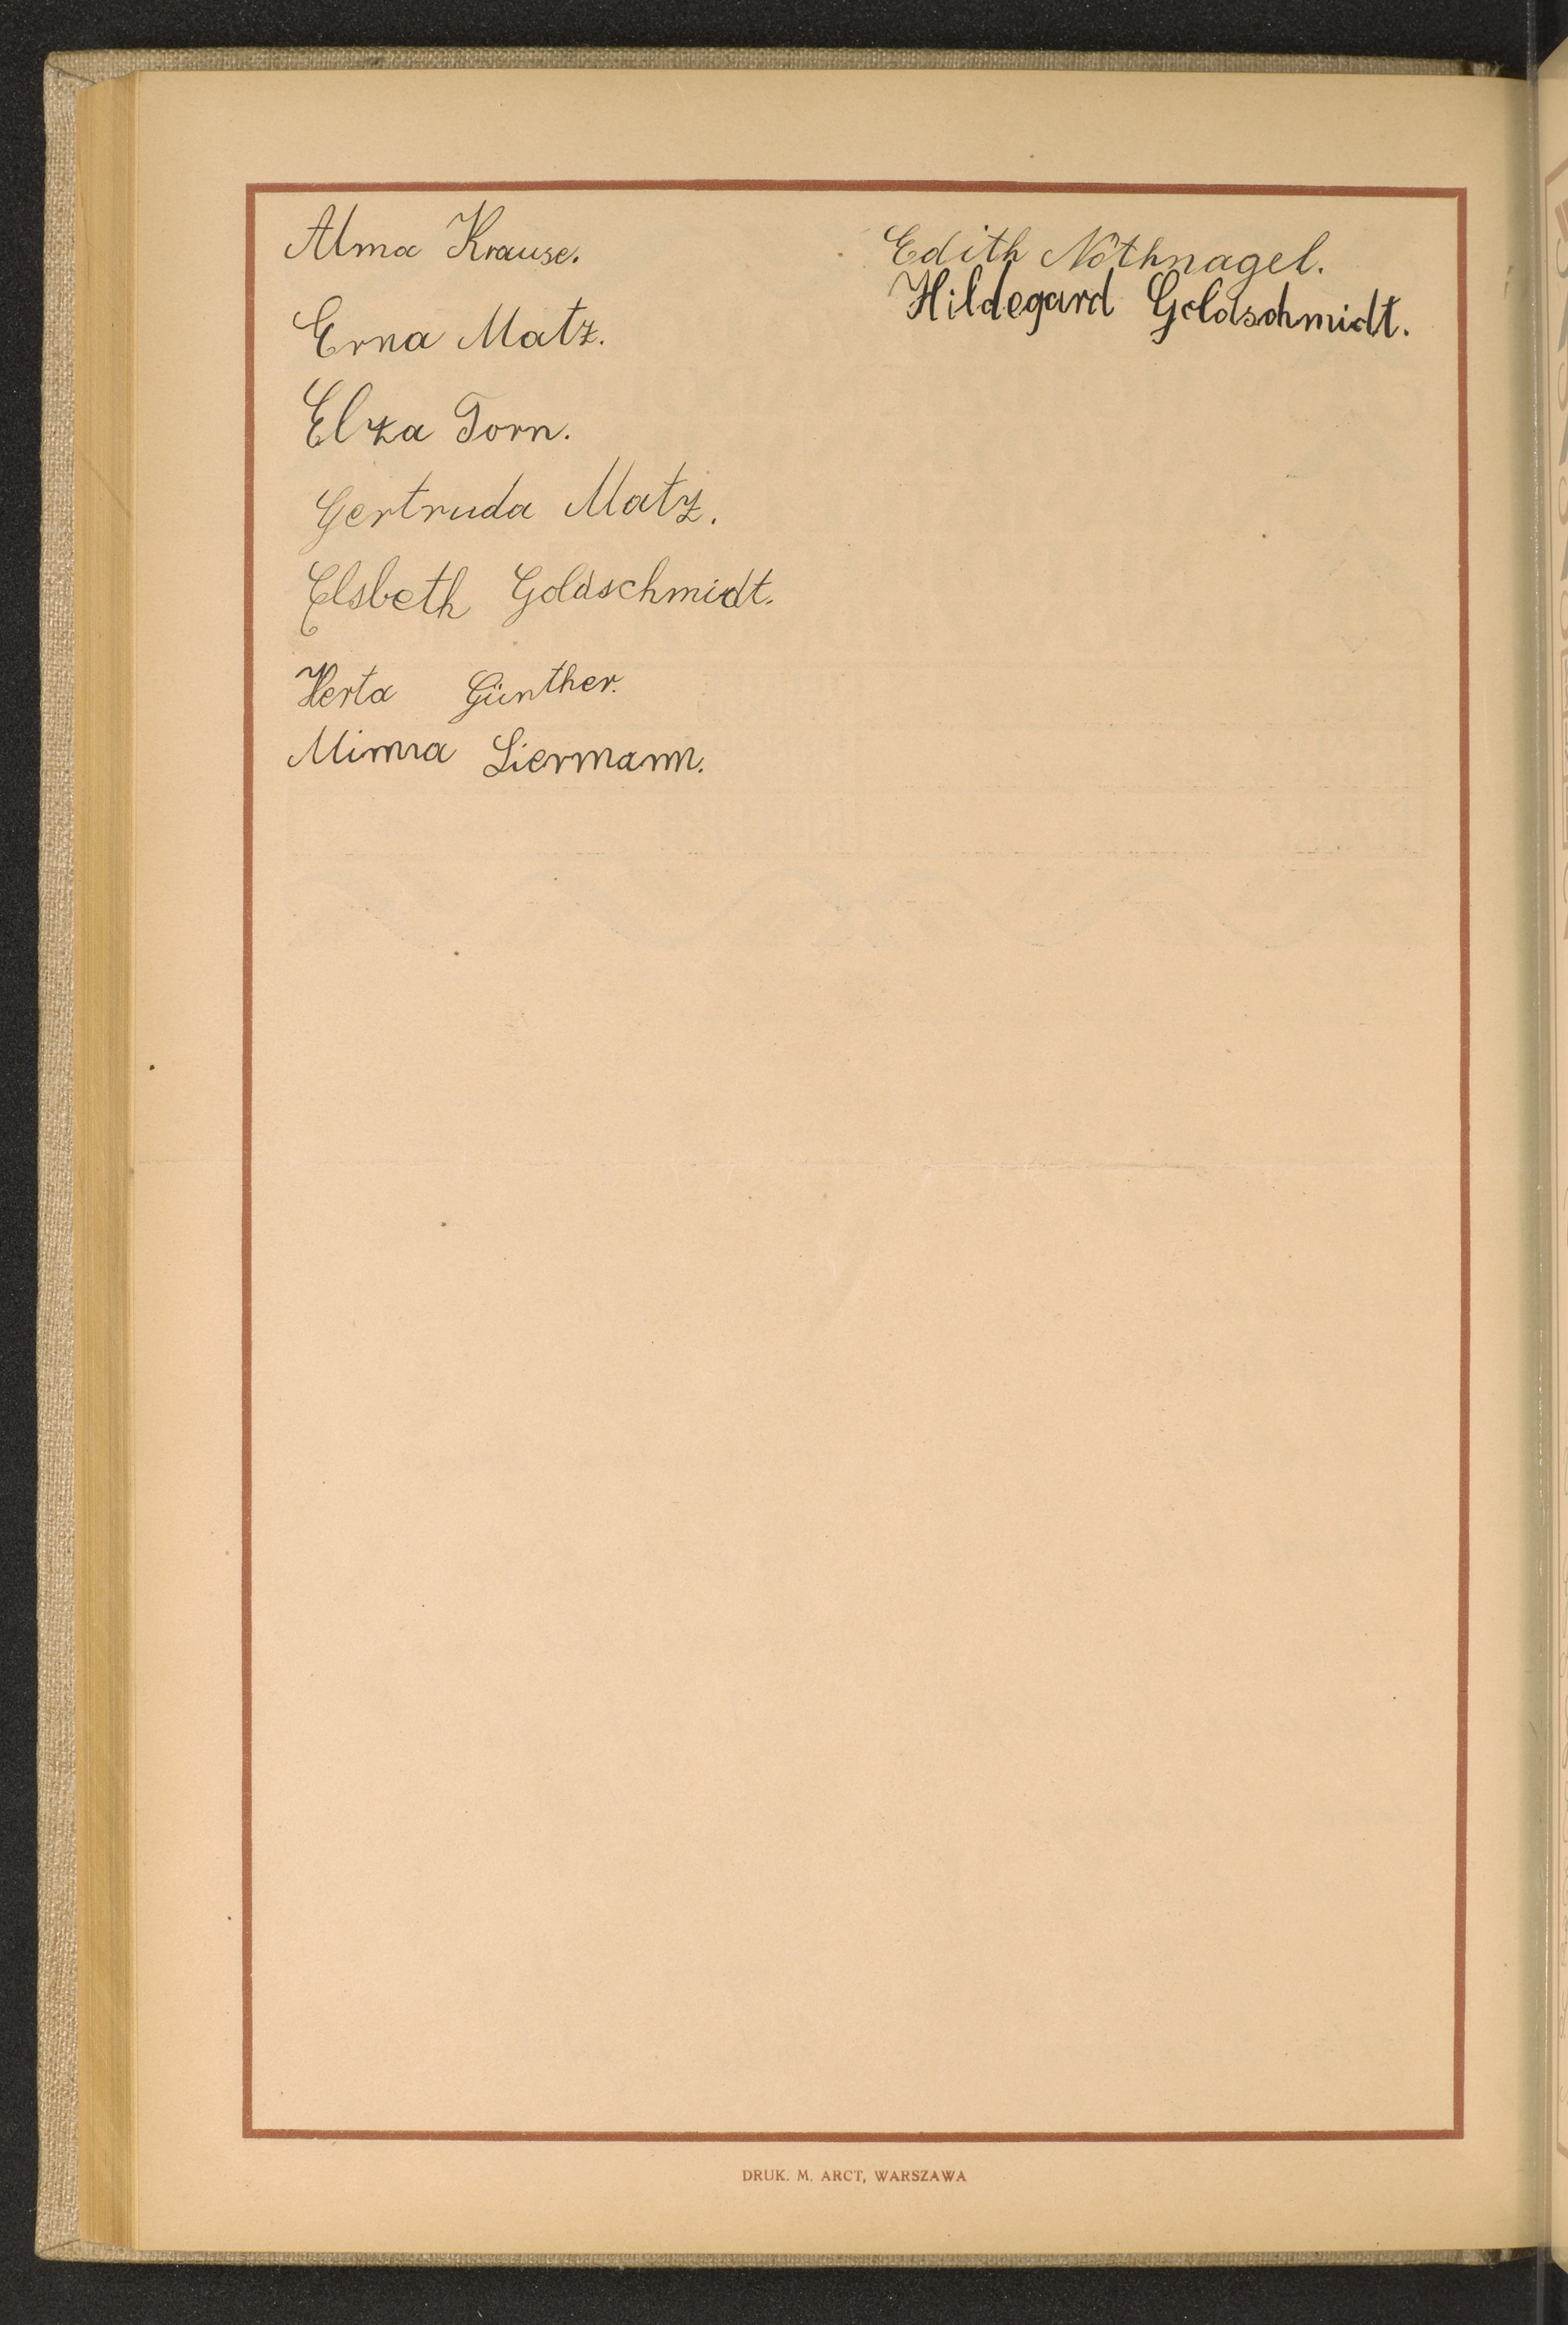 Alma Krause.
Erna Matz.
Elza Torn.
Gertruda Matz.
Elsbeth Goldschmidt.
Herta Günther.
Minna Liermann.
Edith Nothnagel.
Hildegard Goldschmidt.
DRUK. M. ARCT, WARSZAWA